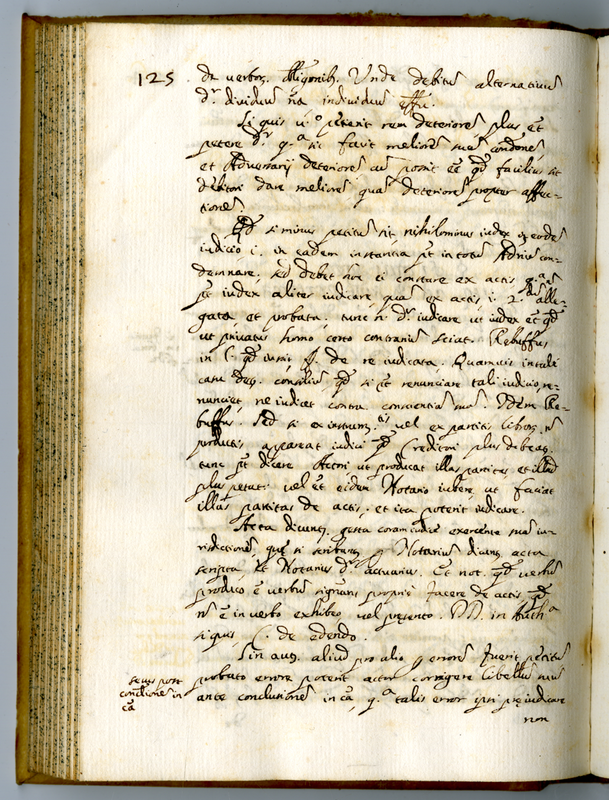 125. de verbor. obligonib. Unde debitũ alternativũ
dr dividuũ nã individuũ
Si quis v.o petierit rem deteriorẽ plus ẽt
petere dr q.a sic facit meliorẽ suã condonẽ
et Adversarij deteriorẽ cũ possit eẽ qd facilius sit
debitori dare meliorẽ quã deteriorẽ propter affec-
tionẽ.
Qd si minus petitũ sit nihilominus iudex in eodẽ
iudicio i. in eadem instantia pt in totũ con-
demnare, sed debet hoc ei constare ex actis q.a nõ
pt iudex aliter iudicare quã ex actis i. 2.dũ alle-
gata, et probata; tunc n. dt iudicare ut iudex et qd
ut privatus homo certo contrariũ sciat. Rebuffus
in l. qd iussit ff. de re iudicata. Quamvis in tali
casu consiliũ qd si pt renunciare tali iudicio re-
nunciet, ne iudicet contra conscientiã suã. Idem Re-
buffus. Sed si ex instrum.tis vel ex partitis libror. nr
productis appareat iudici qd Creditori plus debeat,
tunc pt dicere Actori ut producat illas partitas, et illud
plus petat; vel pt eidem Notario iubere, ut faciat
illas partitas de actis, et ita poterit iudicare.
Acta dicunt. gesta coram iudice exercente suã iu-
risdictionẽ, quæ si scribunt. p Notariũ dicunt. acta
scripta, et Notarius dr actuarius. Et not. qd verbũ
produco ẽ verbũ signans propriè facere de actis qd
nõ ẽ in verbo exhibeo vel presento. DD. in Auth.a
siquis C. de edendo.
Sin aut. aliud pro alio p errorẽ fuerit petitũ
probato errore poterit actor corrigere libellũ suũ
ante conclusionẽ in cã, q.a talis error ipsi præiudicare
non
secus post
conclusionẽ in
cã